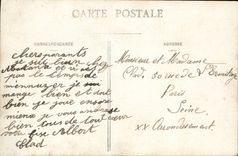 CARTE POSTALE
CORRESPONDANCE
ADRESSE
Chers parents
je suis bien
pas le temps de
m'ennuyer je
mange bien et dort
bien je joue encore
mieux je vous embrasse
bien tous de tout cœur
votre fils Albert
Clad
Monsieur et Madame
Clad. 80 rue de l'Ermitage
Paris
Seine
XX Arrondissement